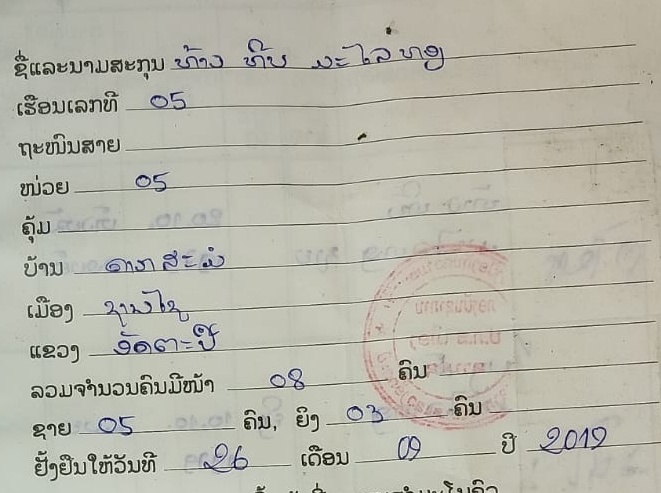 ຊື່ແລະນາມສະກຸນ ທ້າວ ທິບ ມະໄລທອງ
ເຮືອນເລກທີ 05
ຖະໜົນສາຍ
ໜ່ວຍ 05
ຄຸ້ມ
ບ້ານ
ເມືອງ ຊານໄຊ
ແຂວງ ອັດຕະປື
ລວມຈຳນວນຄົນມີໜ້າ 08 ຄົນ
ຊາຍ 05 ຄົນ, ຍິງ 03 ຄົນ
ຢັ້ງຢືນໃຫ້ວັນທີ 26 ເດືອນ 09 ປີ 2012